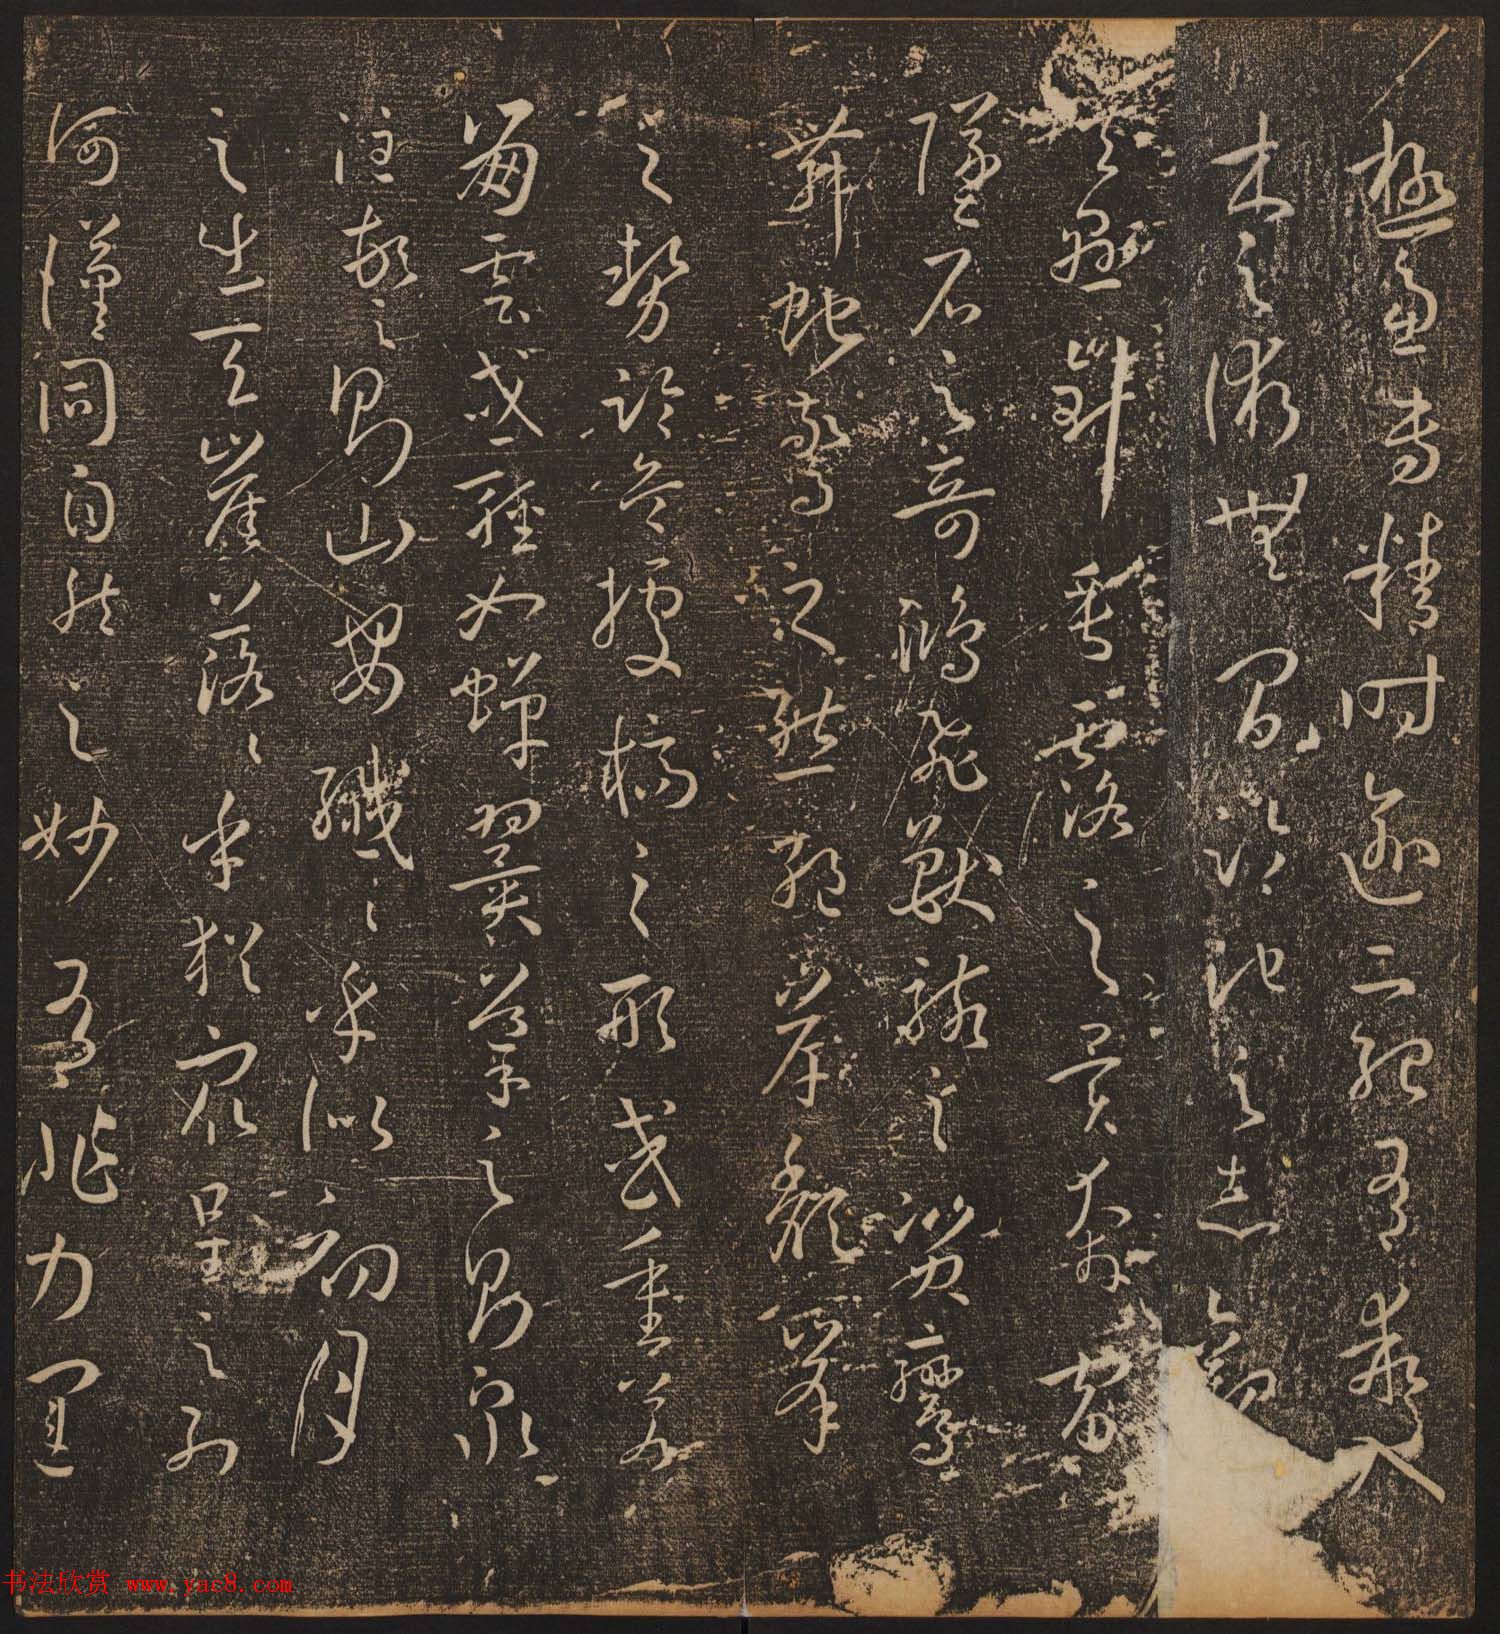 極慮專精時逾二紀有乖入
木之術無間臨池之志觀
夫懸針垂露之異奔雷
墜石之奇鴻飛獸駭之資鸞
舞蛇驚之態絕岸頹峯
之勢臨危據槁之形或重若
崩雲或輕如蟬翼導之則泉
注頓之則山安纖〻乎似初月
之出天崖落〻乎猶眾星之列
河漢同自然之妙有非力運
书法欣赏 www.yac8.com